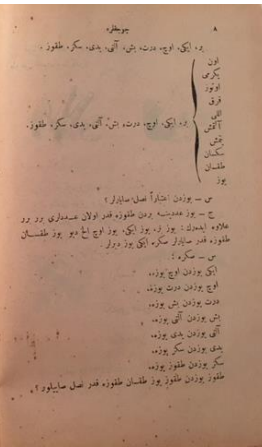 ٨
بر، ایكی، اوچ، درت، بش، آلتی، یدی، سكز، طقوز .
اون
یكرمی
اوتوز
قرق
اللی
آلتمش
یتمش
سكسان
طقسان
یوز
بر، ایكی، اوچ، درت، بش، آلتی، یدی، سكز، طقوز .
س ــ یوزدن اعتباراً نصل صایارلر ؟
ج ــ یوز عددینه بردن طقوزه قدر اولان عددلری برر برر
علاوه ایدەرك : یوز بر، یوز ایكی، یوز اوچ الخ دیو یوز طقسان
طقوزه قدر صایارلر سكره ایكی یوز دیرلر .
س ــ سكره ؛
ایكی یوزدن اوچ یوزه،
اوچ یوزدن درت یوزه،
درت یوزدن بش یوزه،
بش یوزدن آلتی یوزه،
آلتی یوزدن یدی یوزه،
یدی یوزدن سكز یوزه،
سكز یوزدن طقوز یوزه،
طقوز یوزدن طقوز یوز طقسان طقوزه قدر نصل صاییلور ؟